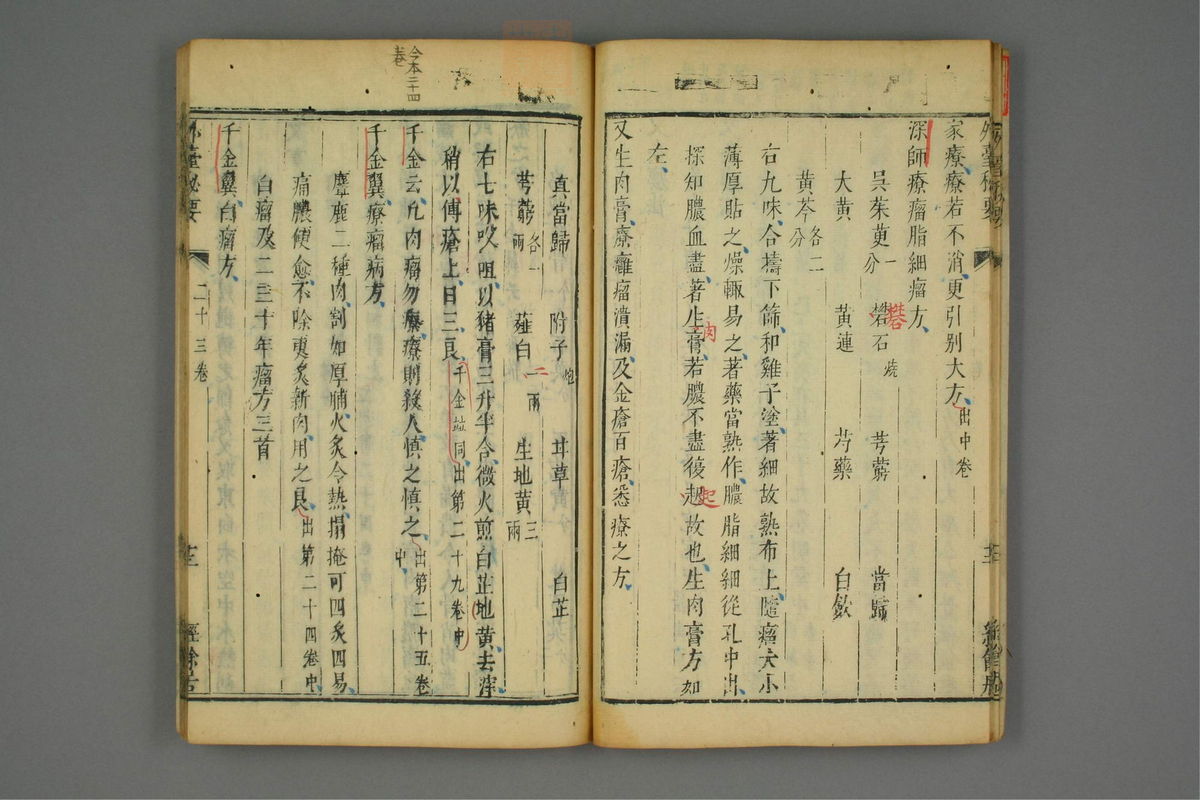 家療療若不消更引別大方出中卷
深師療瘤脂細瘤方
吳茱萸一分 礬石燒 芎藭 當歸
大黃 黃連 芍藥 白蘞
黃芩各二分
右九味合擣下篩和雞子塗著細故熟布上隨瘤大小
薄厚貼之燥輙易之著藥當熟作膿脂細細從孔中出
探知膿血盡著生肉膏若膿不盡復起故也生肉膏方如
左
又生肉膏療癰瘤潰漏及金瘡百瘡悉療之方
真當歸 附子炮 甘草 白芷
芎藭各一兩 薤白二兩 生地黃三兩
右七味㕮咀以豬膏三升半合微火煎白芷地黃去滓
稍以傅瘡上日三良千金並同出第二十九卷中
千金云凡肉瘤勿療療則殺人慎之慎之出第二十五卷中
千金翼療瘤病方
麞鹿二種肉割如厚脯火炙令熱搨掩可四炙四易
痛膿便愈不除更炙新肉用之良出第二十四卷中
白瘤及二三十年瘤方三首
千金翼白瘤方
外臺秘要
二十三卷
經餘居
今本二十四卷